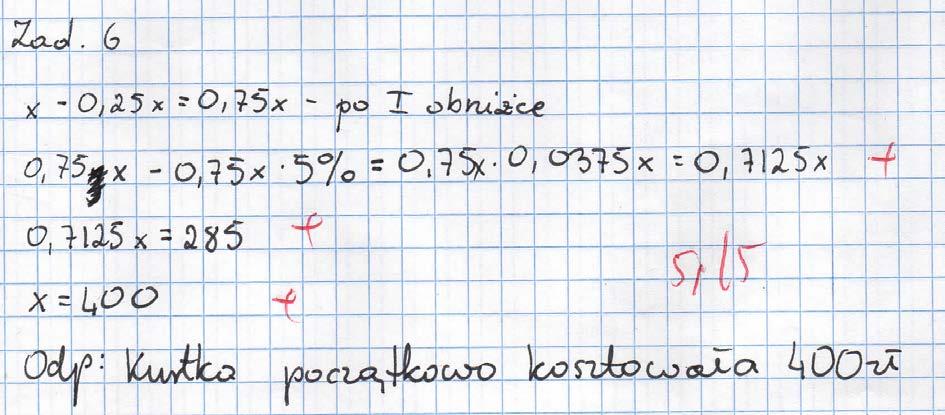 Zad. 6
x - 0,25x = 0,75x - po I obniżce
0,75x - 0,75x · 5% = 0,75x · 0,0375x = 0,7125x +
0,7125x = 285 +
5/5
x = 400 +
Odp: Kurtka początkowo kosztowała 400zł